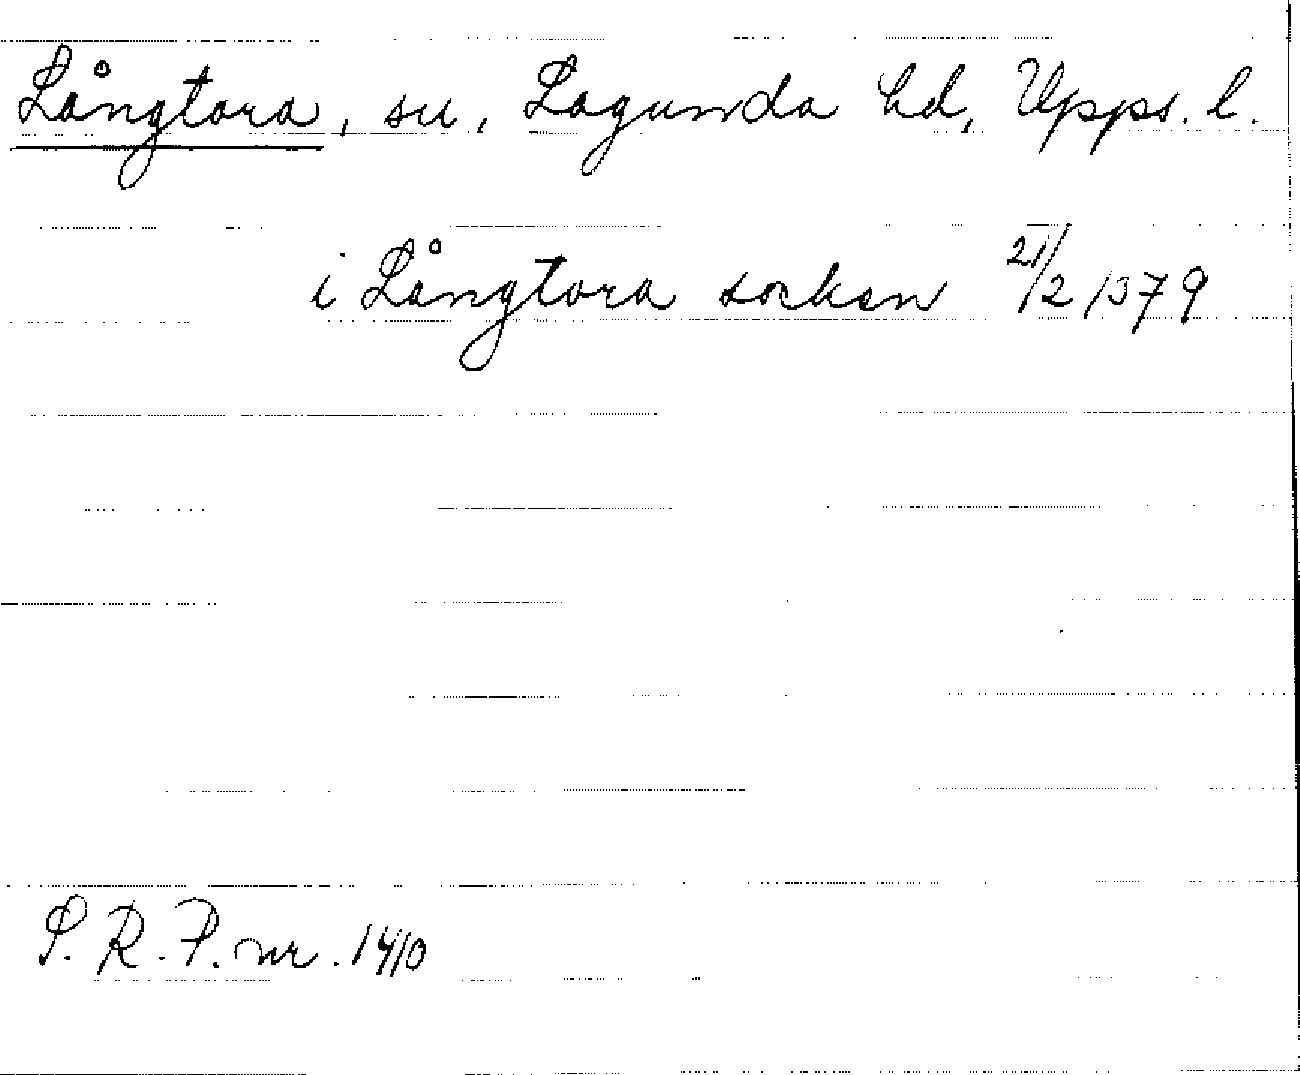 Långtora, sn, Lagunda hd, Upps. l.
i Långtora socken 21/2 1379
S. R. P. nr. 1410